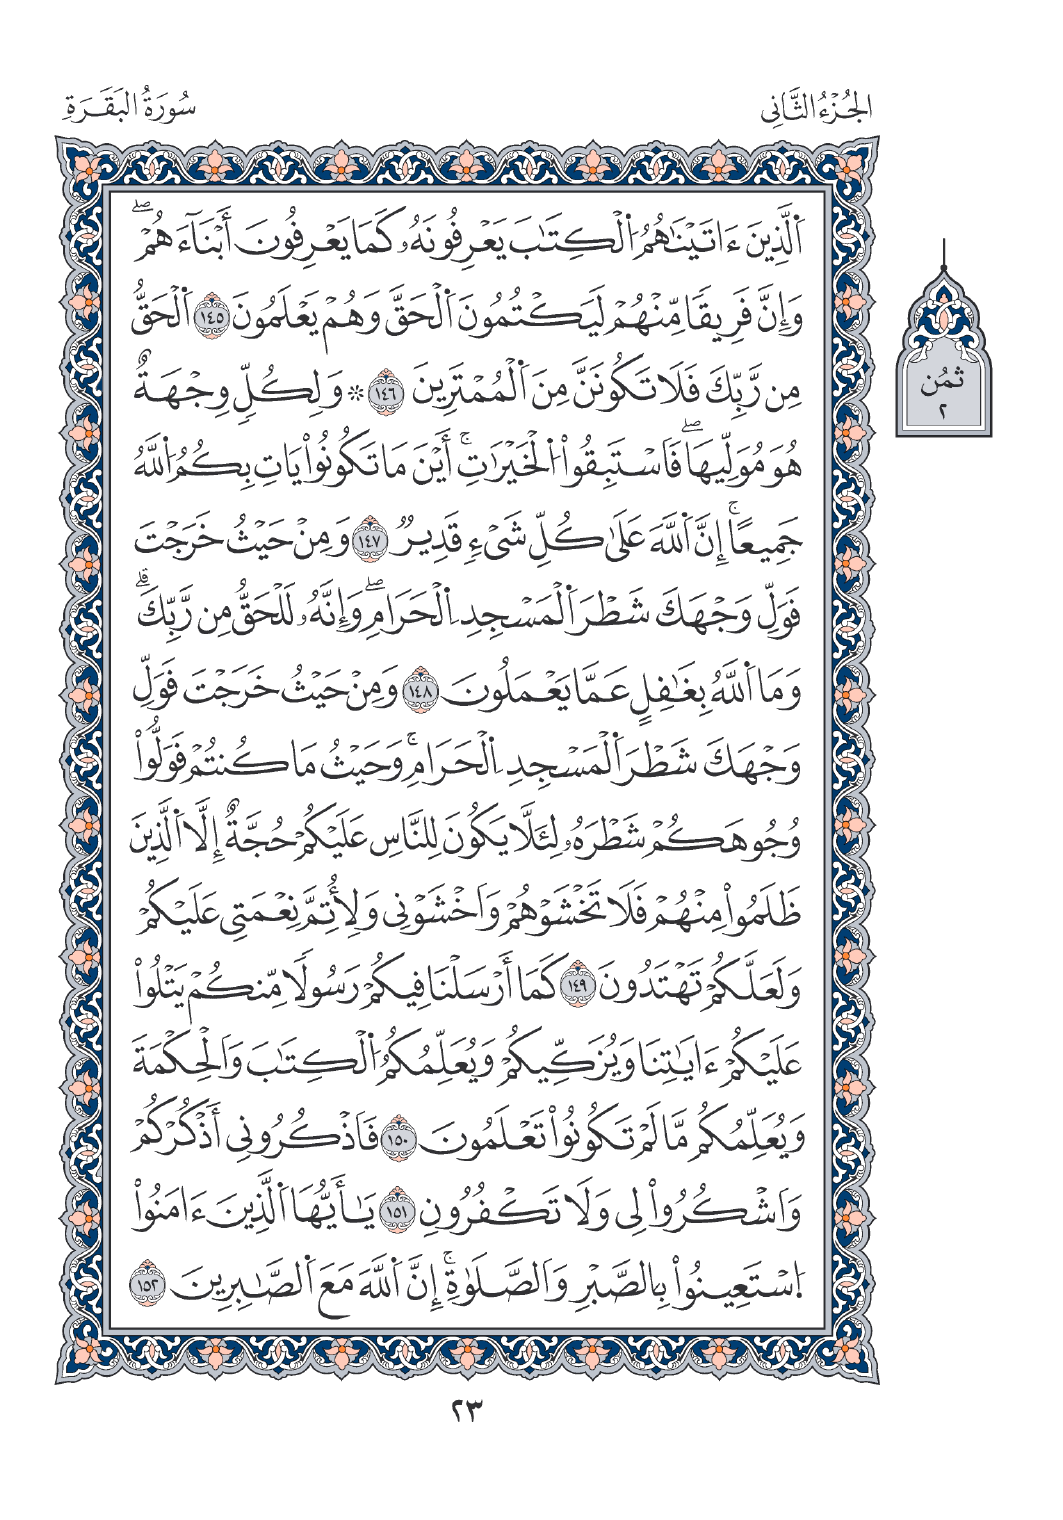 الجُزْءُ الثَّانِي
سُورَةُ البَقَرَةِ
اَ۬لذِينَ ءَاتَيْنَٰهُمُ اُ۬لْكِتَٰبَ يَعْرِفُونَهُۥ كَمَا يَعْرِفُونَ أَبْنَآءَهُمْۖ
وَإِنَّ فَرِيقًا مِّنْهُمْ لَيَكْتُمُونَ اَ۬لْحَقَّ وَهُمْ يَعْلَمُونَ ١٤٥ اَ۬لْحَقُّ
مِن رَّبِّكَ فَلَا تَكُونَنَّ مِنَ اَ۬لْمُمْتَرِينَ ١٤٦ ۞ وَلِكُلٍّ وِجْهَةٌ
هُوَ مُوَلِّيهَاۖ فَاسْتَبِقُواْ اُ۬لْخَيْرَٰتِۚ أَيْنَ مَا تَكُونُواْ يَاتِ بِكُمُ اُ۬للَّهُ
جَمِيعًاۚ إِنَّ اَ۬للَّهَ عَلَىٰ كُلِّ شَيْءٍ قَدِيرٌ ١٤٧ وَمِنْ حَيْثُ خَرَجْتَ
فَوَلِّ وَجْهَكَ شَطْرَ اَ۬لْمَسْجِدِ اِ۬لْحَرَامِۖ وَإِنَّهُۥ لَلْحَقُّ مِن رَّبِّكَۗ
وَمَا اَ۬للَّهُ بِغَٰفِلٍ عَمَّا يَعْمَلُونَ ١٤٨ وَمِنْ حَيْثُ خَرَجْتَ فَوَلِّ
وَجْهَكَ شَطْرَ اَ۬لْمَسْجِدِ اِ۬لْحَرَامِۚ وَحَيْثُ مَا كُنتُمْ فَوَلُّواْ
وُجُوهَكُمْ شَطْرَهُۥ لِئَلَّا يَكُونَ لِلنَّاسِ عَلَيْكُمْ حُجَّةٌ إِلَّا اَ۬لذِينَ
ظَلَمُواْ مِنْهُمْ فَلَا تَخْشَوْهُمْ وَاخْشَوْنِي وَلِأُتِمَّ نِعْمَتِي عَلَيْكُمْ
وَلَعَلَّكُمْ تَهْتَدُونَ ١٤٩ كَمَا أَرْسَلْنَا فِيكُمْ رَسُولًا مِّنكُمْ يَتْلُواْ
عَلَيْكُمْ ءَايَٰتِنَا وَيُزَكِّيكُمْ وَيُعَلِّمُكُمُ اُ۬لْكِتَٰبَ وَالْحِكْمَةَ
وَيُعَلِّمُكُم مَّا لَمْ تَكُونُواْ تَعْلَمُونَ ١٥٠ فَاذْكُرُونِي أَذْكُرْكُمْ
وَاشْكُرُواْ لِي وَلَا تَكْفُرُونِ ١٥١ يَٰأَيُّهَا اَ۬لذِينَ ءَامَنُواْ
اُ۪سْتَعِينُواْ بِالصَّبْرِ وَالصَّلَوٰةِۚ إِنَّ اَ۬للَّهَ مَعَ اَ۬لصَّٰبِرِينَ ١٥٢
ثُمُن
٢
٢٣